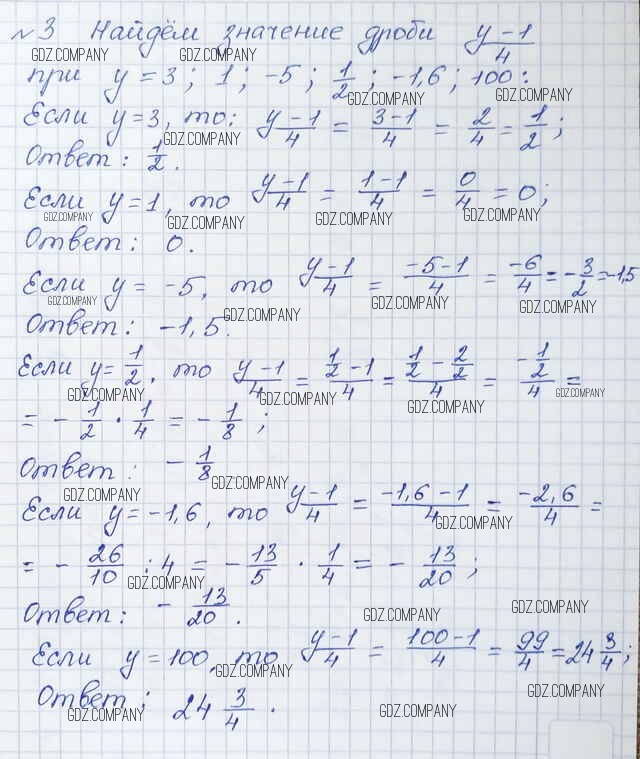 №3 Найдём значение дроби (y-1)/4
при y=3; 1; -5; 1/2; -1,6; 100:
Если y=3, то: (y-1)/4 = (3-1)/4 = 2/4 = 1/2;
Ответ: 1/2.
Если y=1, то (y-1)/4 = (1-1)/4 = 0/4 = 0;
Ответ: 0.
Если y= -5, то (y-1)/4 = (-5-1)/4 = -6/4 = -3/2 = -1,5
Ответ: -1,5.
Если y=1/2, то (y-1)/4 = (1/2 -1)/4 = (1/2 - 2/2)/4 = (-1/2)/4 =
= - 1/2 · 1/4 = - 1/8;
Ответ: - 1/8
Если y= -1,6, то (y-1)/4 = (-1,6-1)/4 = (-2,6)/4 =
= - 26/10 : 4 = - 13/5 · 1/4 = - 13/20;
Ответ: - 13/20.
Если y=100, то (y-1)/4 = (100-1)/4 = 99/4 = 24 3/4;
Ответ: 24 3/4.
GDZ.COMPANY GDZ.COMPANY GDZ.COMPANY
GDZ.COMPANY GDZ.COMPANY
GDZ.COMPANY
GDZ.COMPANY GDZ.COMPANY GDZ.COMPANY GDZ.COMPANY
GDZ.COMPANY GDZ.COMPANY GDZ.COMPANY GDZ.COMPANY
GDZ.COMPANY GDZ.COMPANY GDZ.COMPANY GDZ.COMPANY
GDZ.COMPANY GDZ.COMPANY GDZ.COMPANY
GDZ.COMPANY
GDZ.COMPANY GDZ.COMPANY
GDZ.COMPANY
GDZ.COMPANY GDZ.COMPANY GDZ.COMPANY